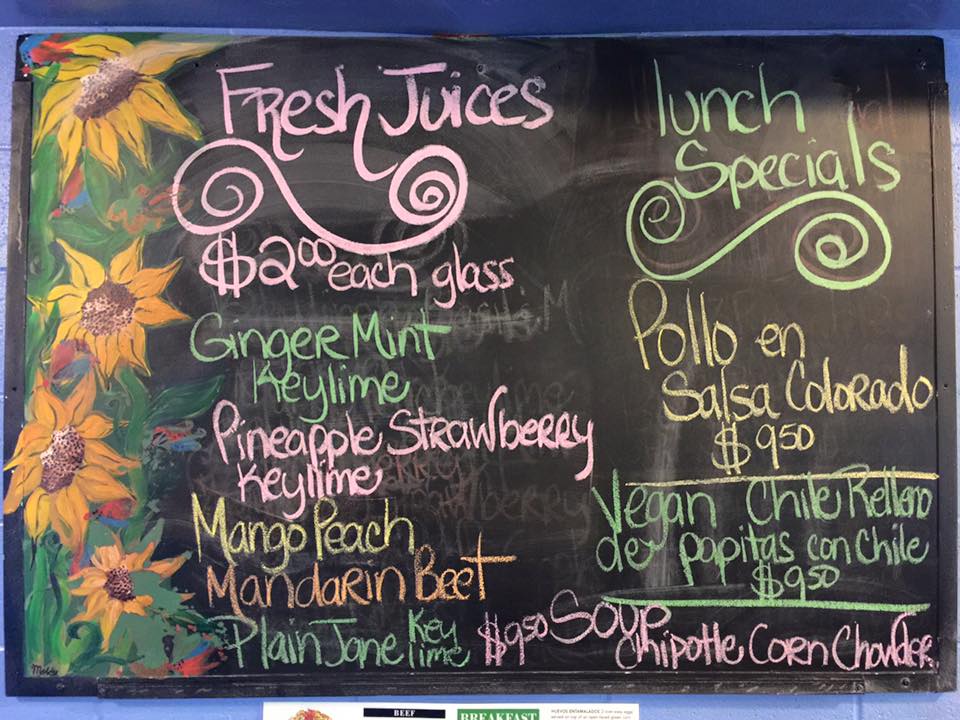 Fresh Juices
$2.00 each glass
Ginger Mint
Keylime
Pineapple Strawberry
Keylime
Mango Peach
Mandarin Beet
Plain Jane Key
lime
lunch
Specials
Pollo en
Salsa Colorado
$950
Vegan Chile Relleno
de papitas con Chile
$950
$950 Soup
Chipotle Corn Chowder
BEEF
BREAKFAST
HUEVOS ENTAMALADOS